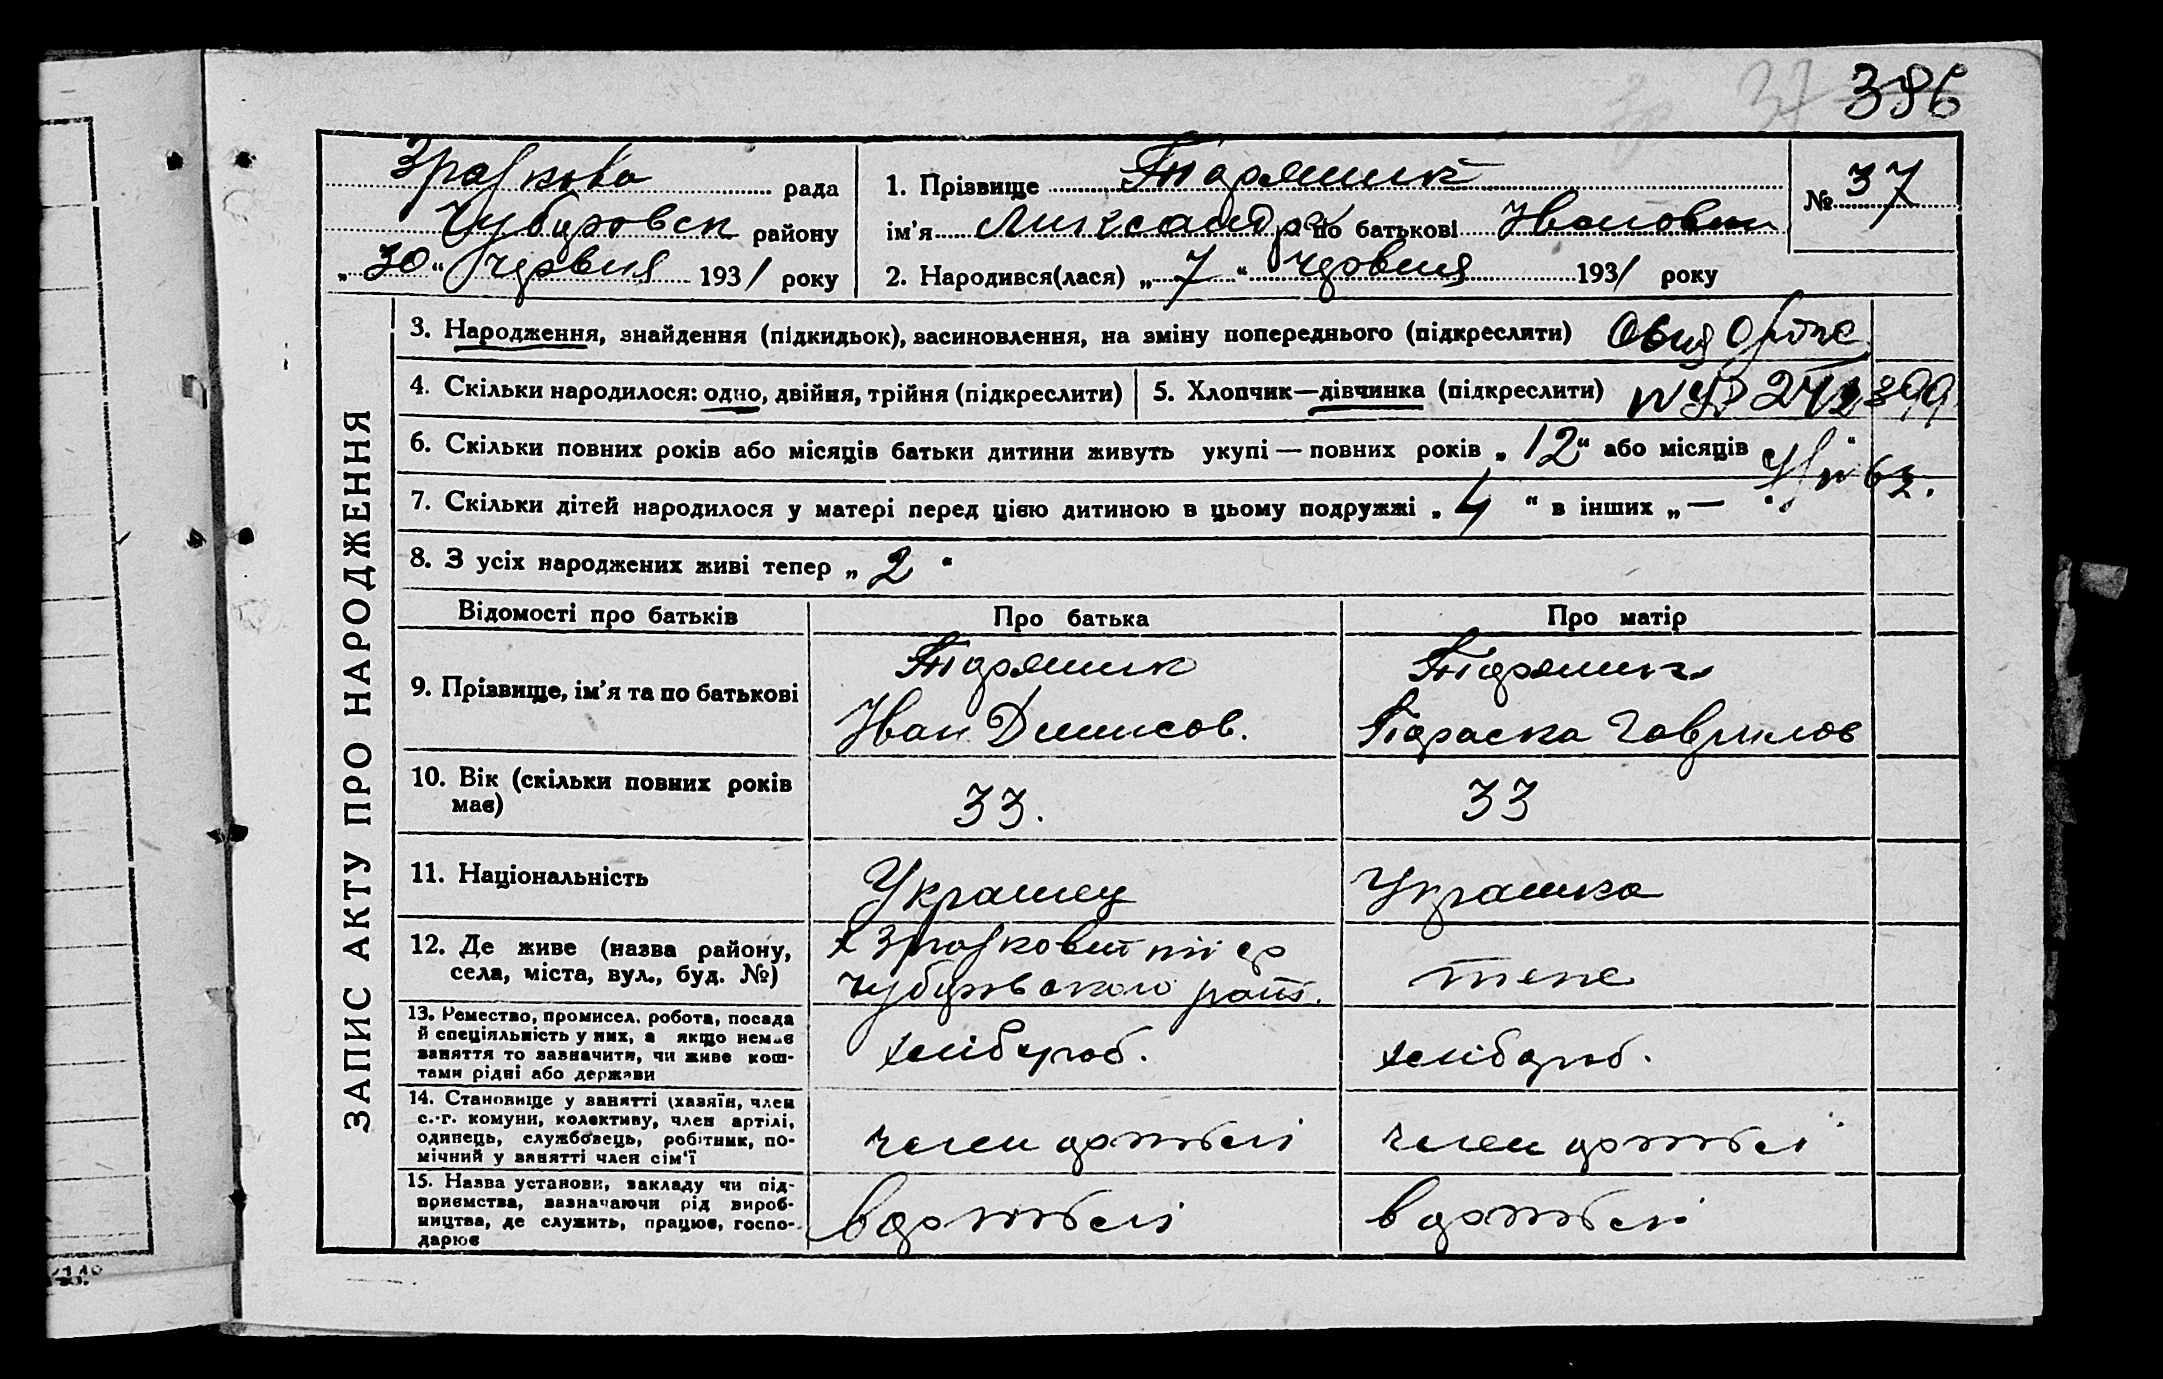 37 396
рада
Чубаровск району
„30“ червня 1931 року
1. Прізвище
ім'я по батькові
2. Народився(лася) „7“ червня 1931 року
№ 37
ЗАПИС АКТУ ПРО НАРОДЖЕННЯ
3. Народження, знайдення (підкидьок), засиновлення, на зміну попереднього (підкреслити)
4. Скільки народилося: одно, двійня, трійня (підкреслити)
5. Хлопчик—дівчинка (підкреслити)
6. Скільки повних років або місяців батьки дитини живуть укупі — повних років „12“ або місяців
7. Скільки дітей народилося у матері перед цією дитиною в цьому подружжі „4“ в інших „—“
8. З усіх народжених живі тепер „2“
Відомості про батьків Про батька Про матір
9. Прізвище, ім'я та по батькові
Иван Денисов. Параска Гаврилов
10. Вік (скільки повних років має)
33. 33
11. Національність
Украинец Украинка
12. Де живе (назва району, села, міста, вул., буд. №)
Чубаровского район. теж
13. Ремество, промисел, робота, посада й спеціяльність у них, а якщо немає заняття то зазначити, чи живе коштами рідні або держави
хлібороб. хлібороб.
14. Становище у занятті (хазяїн, член с.-г. комуни, колективу, член артілі, одинець, службовець, робітник, помічний у занятті член сім'ї
член артілі член артілі
15. Назва установи, закладу чи підприємства, зазначаючи рід виробництва, де служить, працює, господарює
в артілі в артілі